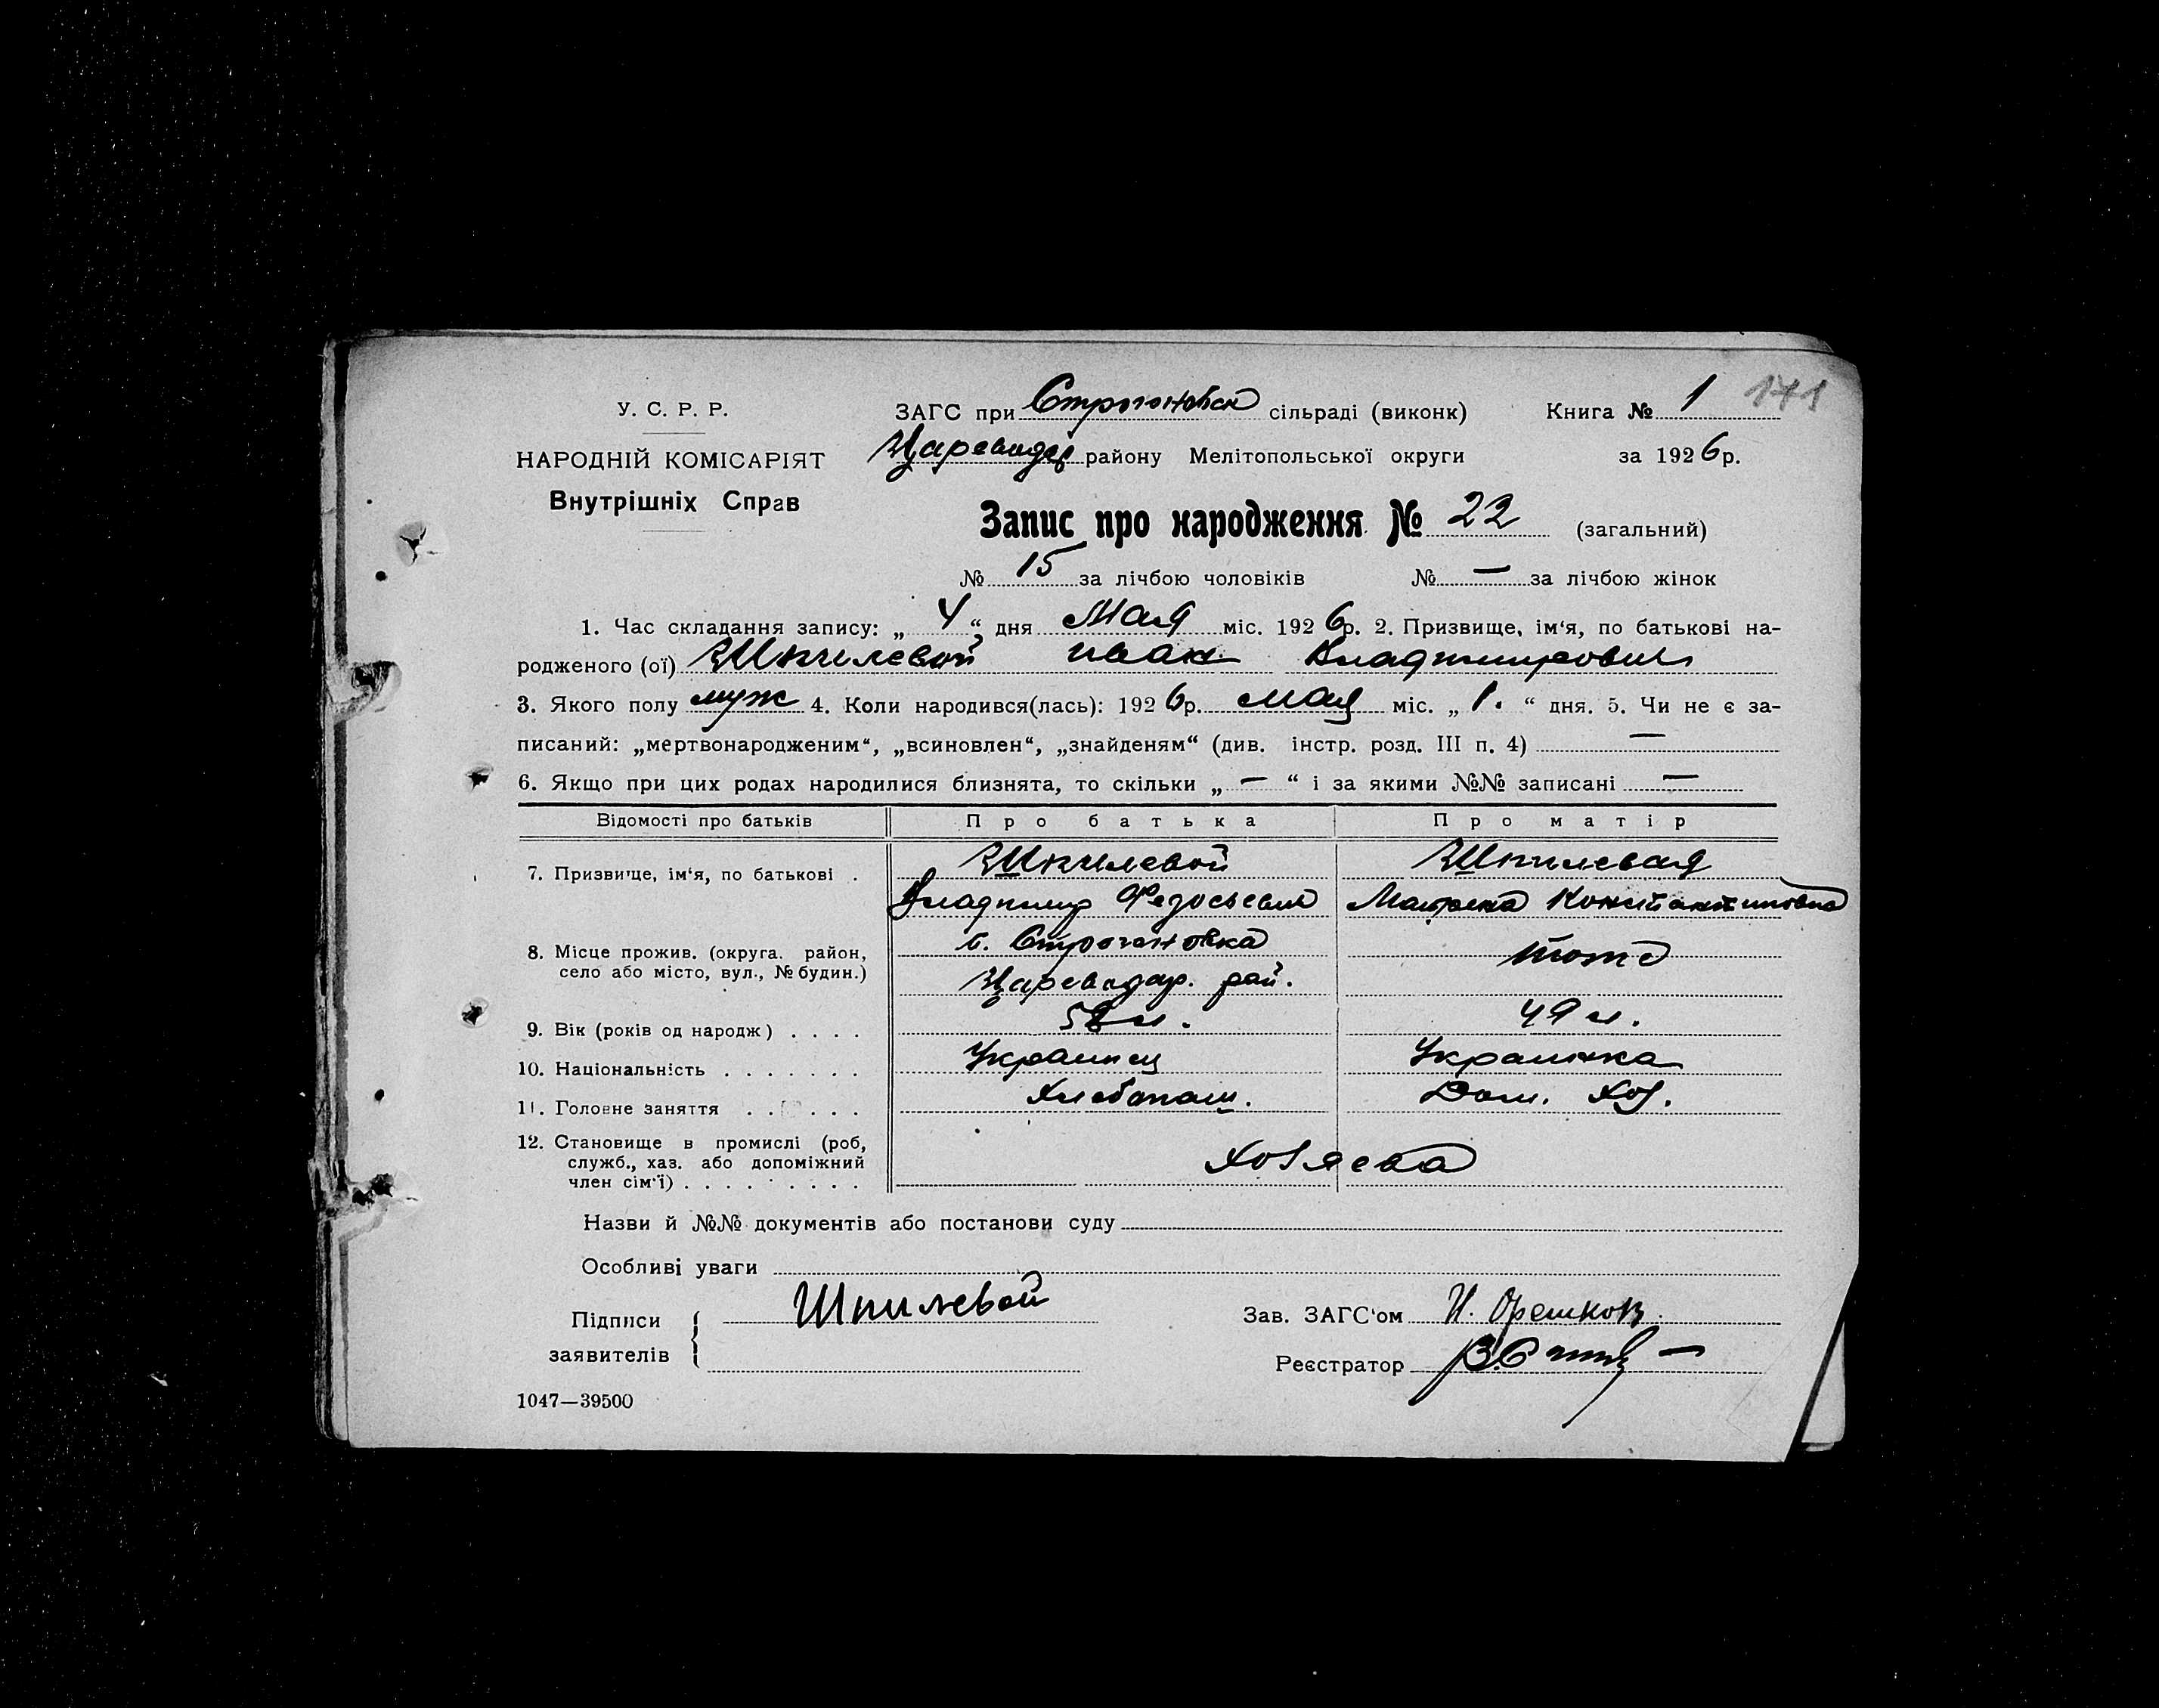 У. С. Р. Р.
НАРОДНІЙ КОМІСАРІЯТ
Внутрішніх Справ
ЗАГС при Строгоновск сільраді (виконк) Книга № 1 171
Цареводар району Мелітопольської округи за 1926р.
Запис про народження № 22 (загальний)
№ 15 за лічбою чоловіків № — за лічбою жінок
1. Час складання запису: „ 4 “ дня Мая міс. 1926р. 2. Призвище, ім‘я, по батькові на-
родженого (ої) Шпилевой Иван Владимирович
3. Якого полу муж 4. Коли народився(лась): 1926р. мая міс. „ 1. “ дня. 5. Чи не є за-
писаний: „мертвонародженим“, „всиновлен“, „знайденям“ (див. інстр. розд. III п. 4) —
6. Якщо при цих родах народилися близнята, то скільки „ — “ і за якими №№ записані —
Відомості про батьків Про батька Про матір
7. Призвище, ім‘я, по батькові . Шпилевой Шпилевая
Владимир Федосьевич Матрена Константиновна
8. Місце прожив. (округа. район, с. Строгоновка тоже
село або місто, вул., № будин.) Цареводар. рай.
9. Вік (років од народж) . . . . 58 л. 49 л.
10. Національність . . . . . . . Украинец Украинка
11. Головне заняття . . . . . Хлебопаш. Дом. хоз.
12. Становище в промислі (роб,
служб., хаз. або допоміжний Хозяева
член сім‘ї) . . . . . . . . .
Назви й №№ документів або постанови суду
Особливі уваги
Підписи заявителів Шпилевой
Зав. ЗАГС‘ом И. Орешков
Реєстратор
1047—39500